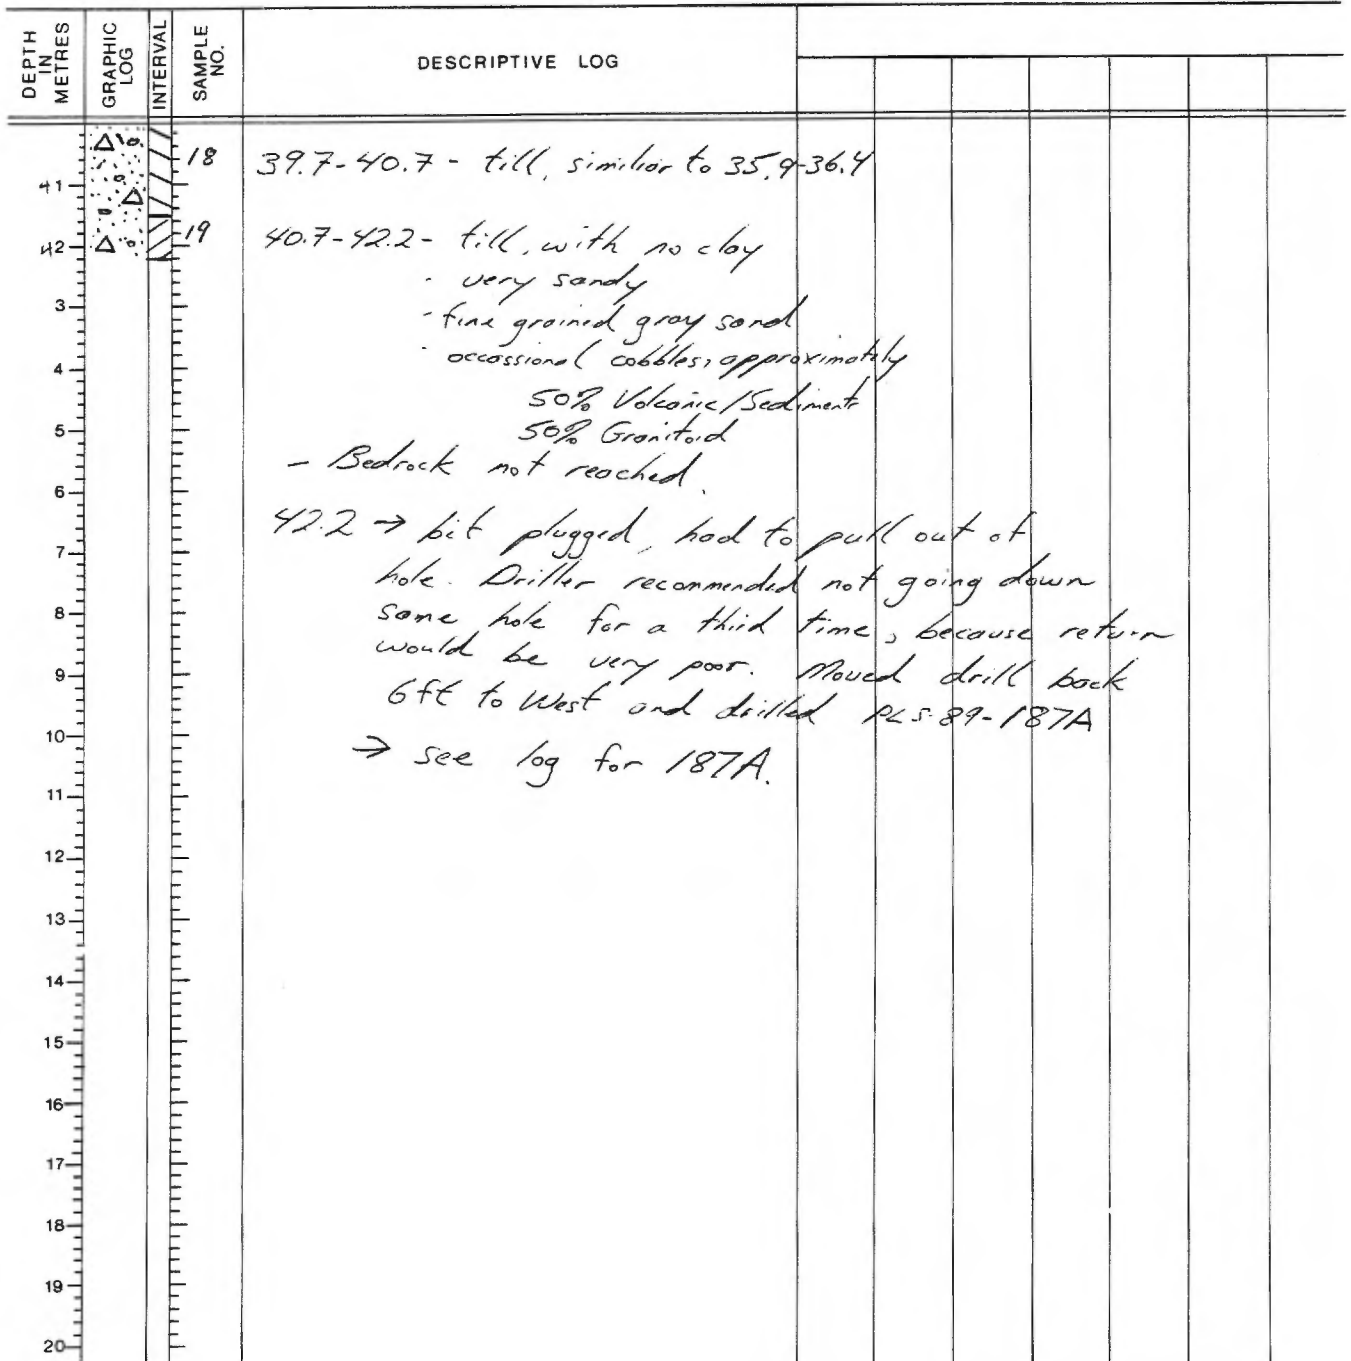 DEPTH IN METRES
GRAPHIC LOG
INTERVAL
SAMPLE NO.
DESCRIPTIVE LOG
18 39.7-40.7 - till, similior to 35.9-36.4
41
19 40.7-42.2 - till, with no clay
42
- very sandy
3
- fine grained gray sand
- occassional cobbles, approximately
4
50% Volcanic/Sediments
5
50% Granitoid
- Bedrock not reached.
6
42.2 → bit plugged, had to pull out of
7
hole. Driller recommended not going down
8
same hole for a third time, because return
would be very poor. Moved drill back
9
6ft to West and drilled PLS-89-187A
10
→ see log for 187A.
11
12
13
14
15
16
17
18
19
20